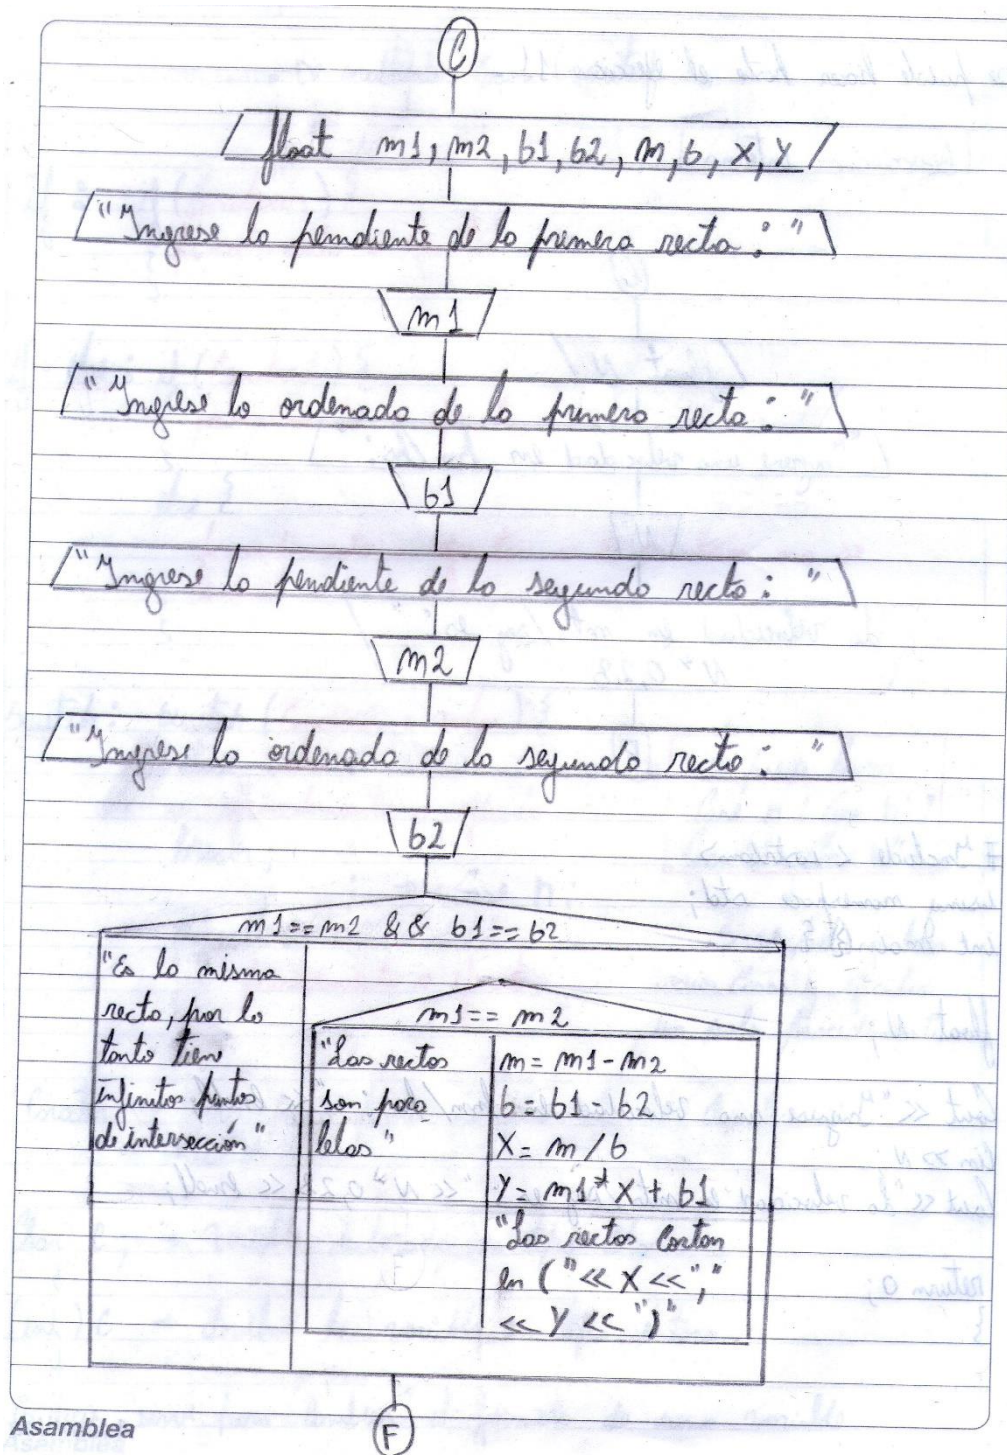 C
float m1, m2, b1, b2, m, b, X, Y
"Ingrese la pemdiente de la primera recta: "
m1
"Ingrese la ordenada de la primera recta: "
b1
"Ingrese la pendiente de la segunda recta: "
m2
"Ingrese la ordenada de la segunda recta: "
b2
m1==m2 && b1==b2
"Es la misma
recta, por lo
tanto tiene
infinitos puntos
de intersección"
m1== m2
"Las rectas
son para
lelas"
m= m1-m2
b= b1-b2
X= m/b
Y= m1*X+b1
"Las rectas cortan
en ("<<X<<","
<<Y<<")"
F
Asamblea